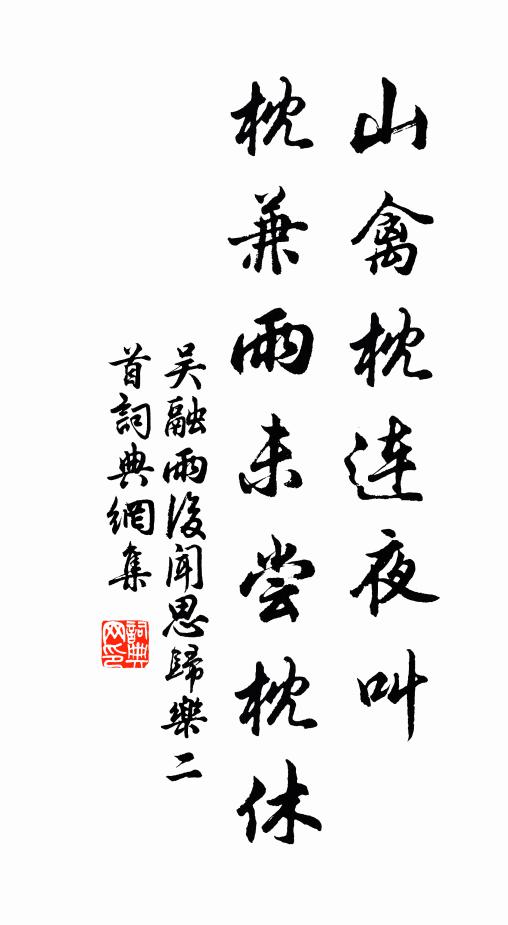 山禽枕连夜叫
枕兼雨未尝枕休
吴融雨後闻思歸樂二
首詞典網集
詞典网印